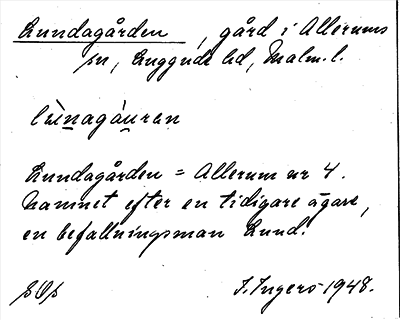 Lundagården, gård i Allerums
sn, Luggude hd, Malm. l.
lùnagáuren
Lundagården = Allerum nr 4.
Namnet efter en tidigare ägare,
en befallningsman Lund.
I. Ingers 1948.